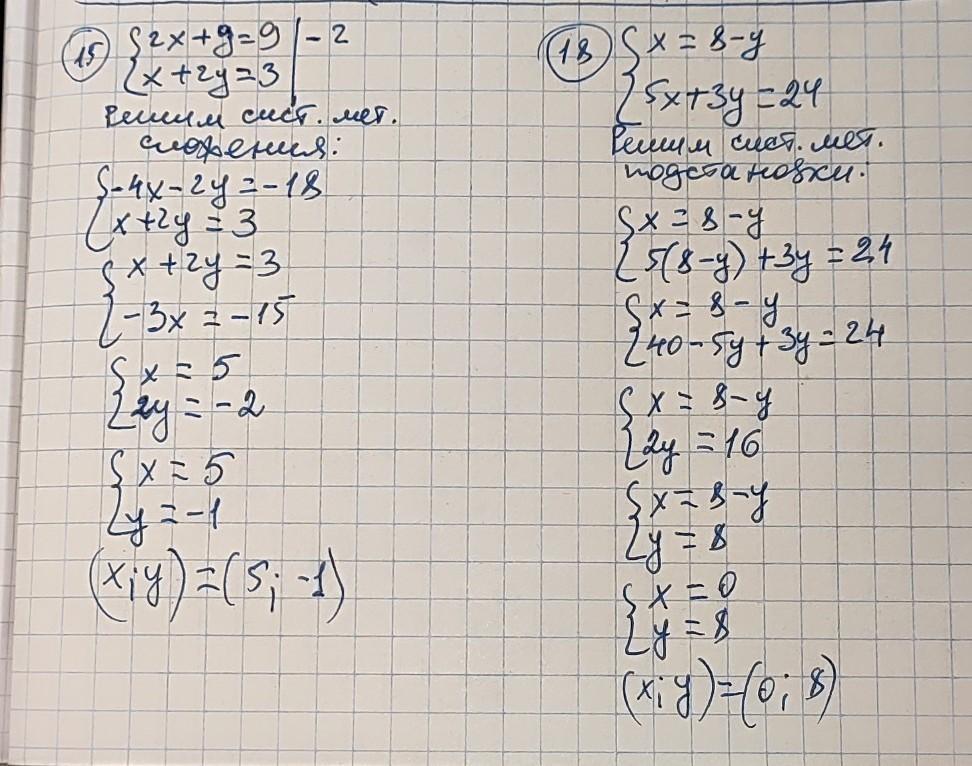 15 {2x+y=9 | -2
{x+2y=3 |
Решим сист. мет.
сложения:
{-4x-2y=-18
{x+2y=3
{x+2y=3
{-3x=-15
{x=5
{2y=-2
{x=5
{y=-1
(x;y)=(5;-1)
18 {x=8-y
{5x+3y=24
Решим сист. мет.
подстановки:
{x=8-y
{5(8-y)+3y=24
{x=8-y
{40-5y+3y=24
{x=8-y
{2y=16
{x=8-y
{y=8
{x=0
{y=8
(x;y)=(0;8)